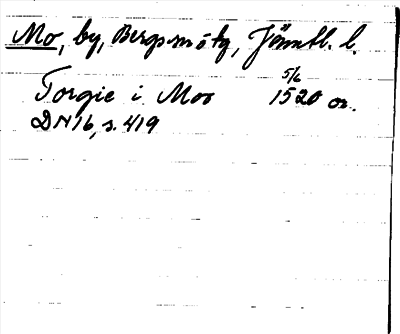 Mo, by, Bergs sn o tg, Jämtl. l.
Torgie i Moo 5/6 1520 or.
DN 16, s. 419